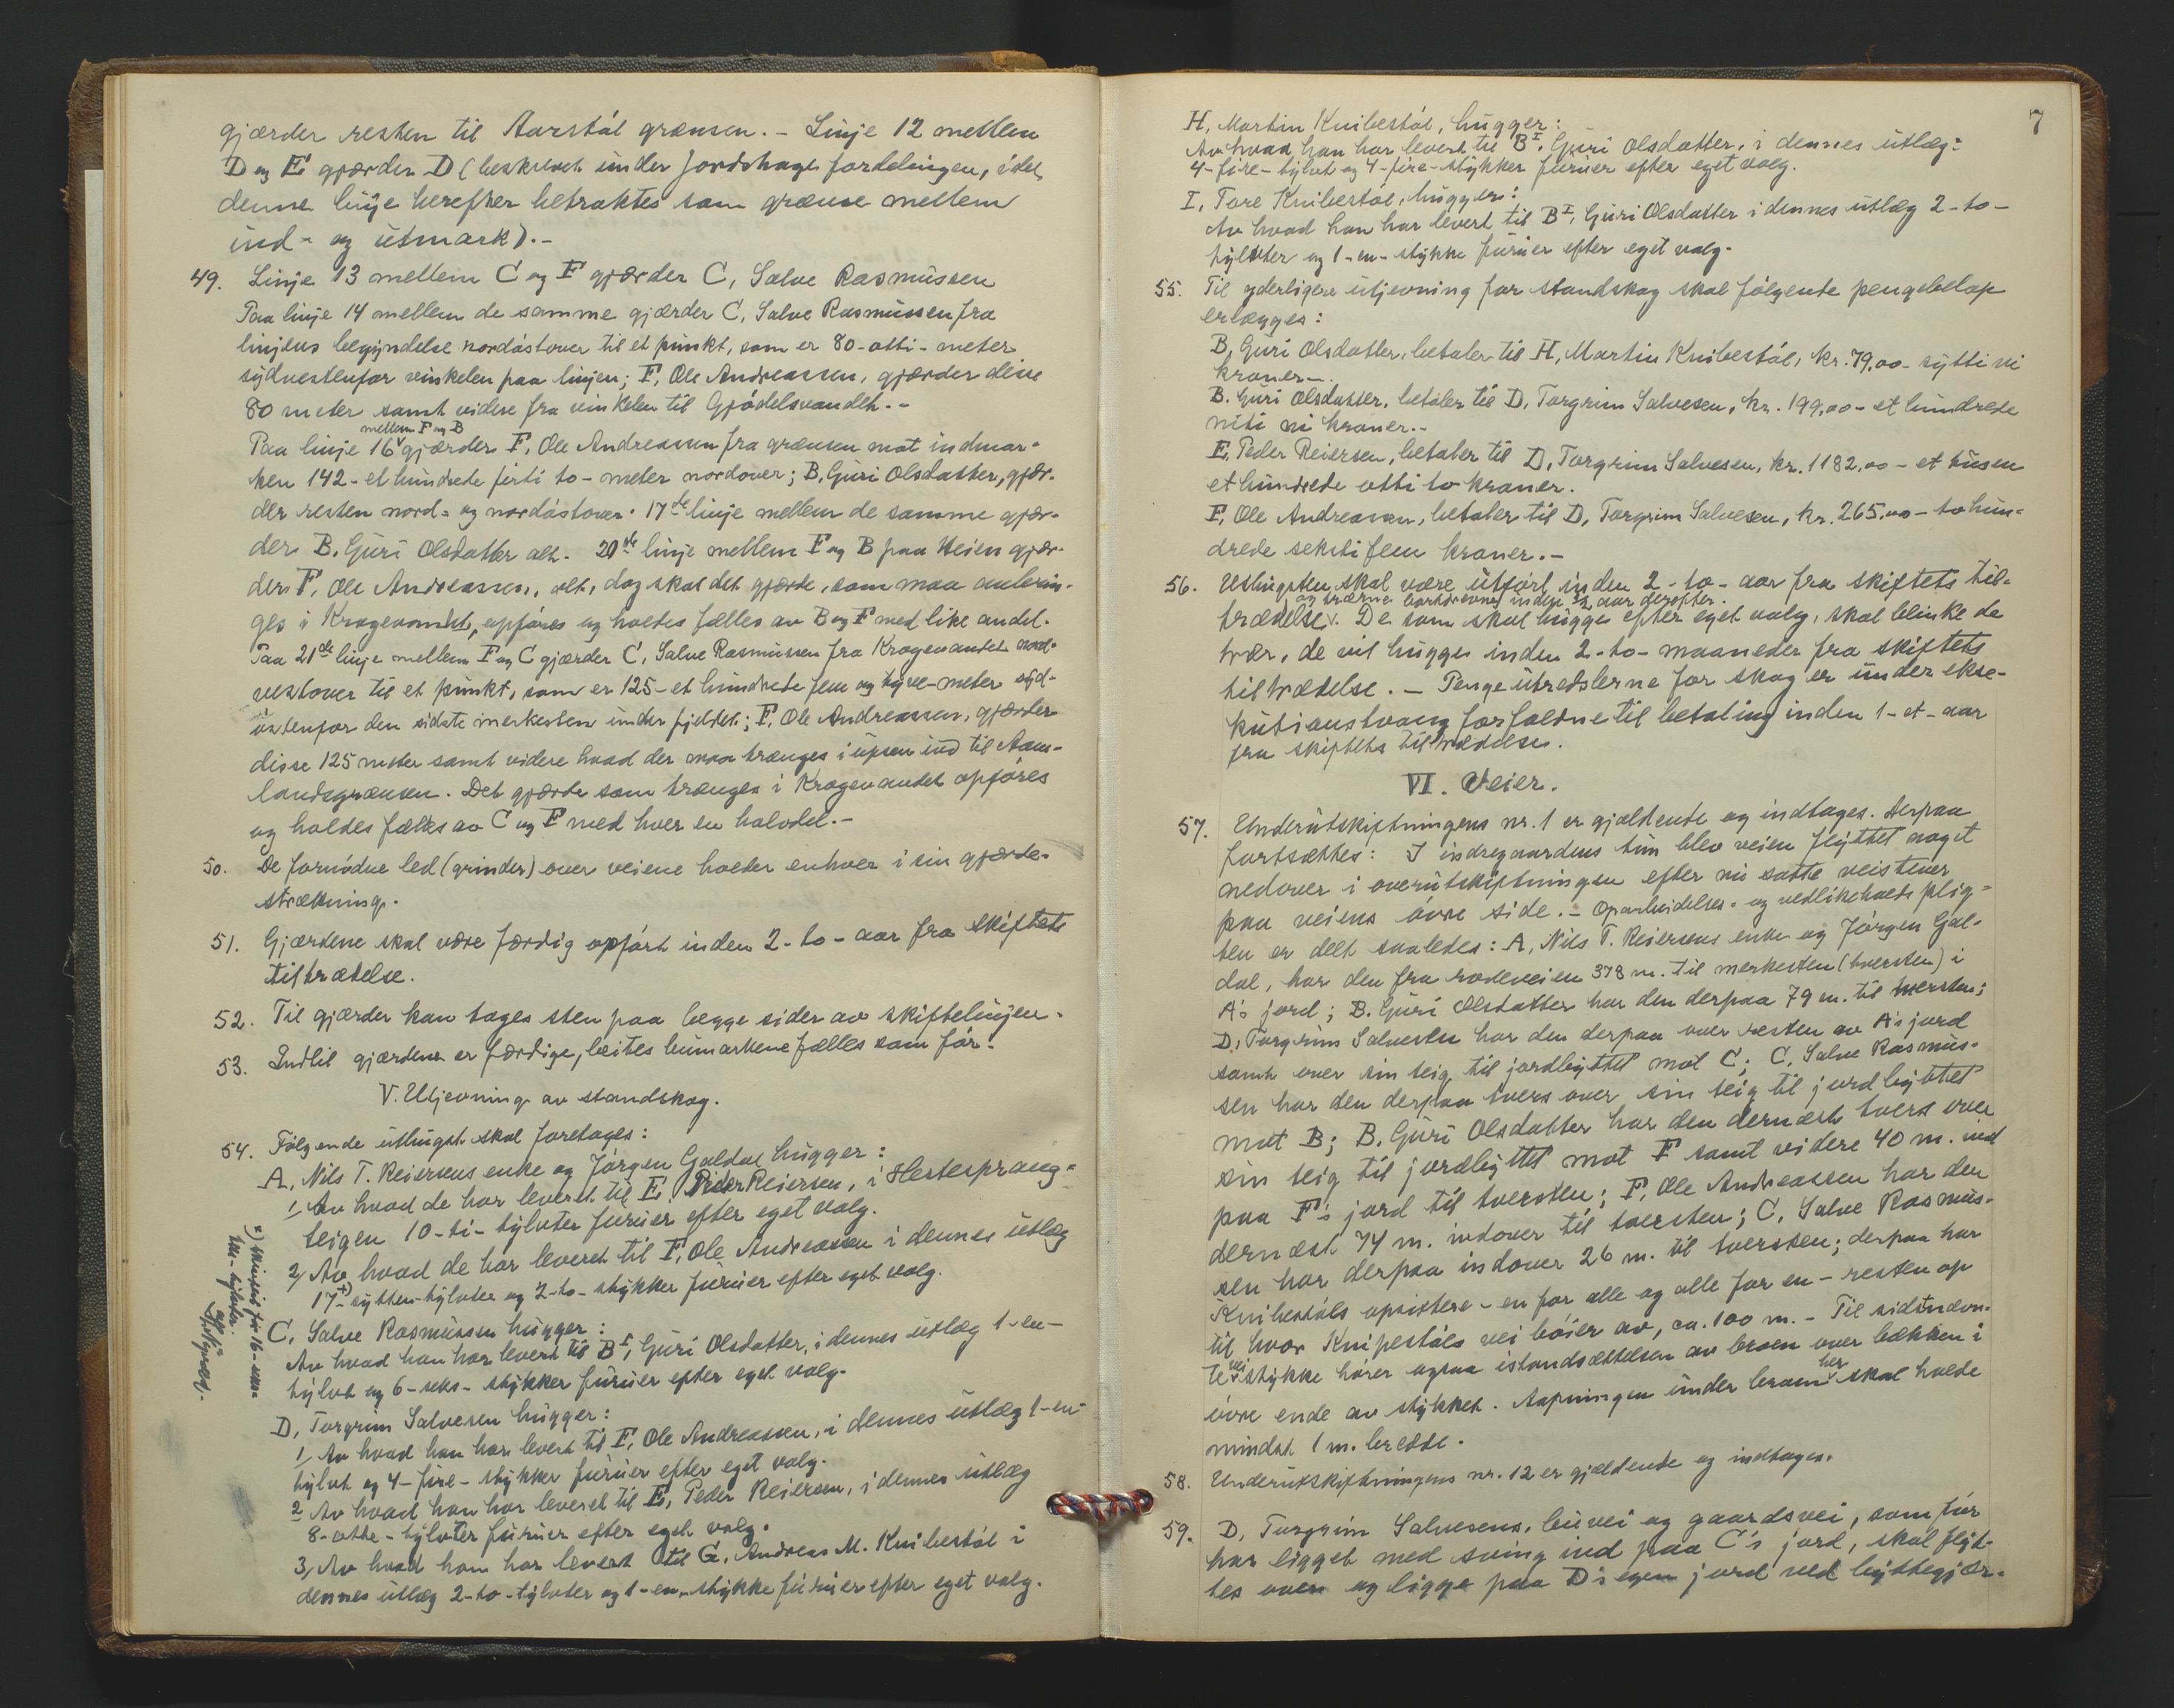 gjærder resten til Aarstöl grænsen. - Linje 12 mellem
D og E gjærder D (beskrevet under Jordshage fordelingen, idet
denne linje herefter betraktes som grænse mellem
ind- og utmark). -
49. Linje 13 mellem C og F gjærder C, Salve Rasmussen
Paa linje 14 mellem de samme gjærder C, Salve Rasmussen fra
linjens begyndelse nordöstover til et punkt, som er 80-otti-meter
sydvestenfor vinkelen paa linjen; F, Ole Andreassen, gjærder disse
80 meter samt videre fra vinkelen til Gjödelsvandet. -
mellem F og B
Paa linje 16 gjærder F, Ole Andreassen fra grænsen mot indmar-
ken 142 - et hundrede firti to - meter nordover; B, Guri Olsdatter, gjær-
der resten nord- og nordöstover. 17de linje mellem de samme gjær-
der B. Guri Olsdatter alt. 20de linje mellem F og B paa Heien gjær-
der F, Ole Andreassen, alt, dog skal det gjærde, som maa anbrin-
ges i Kragevandet, opföres og holdes fælles av B og F med like andel.
Paa 21de linje mellem F og C gjærder C, Salve Rasmussen fra Kragevandet nord-
vestover til et punkt, som er 125 - et hundrede fem og tyve-meter syd-
östenfor den sidste merkesten under fjeldet; F, Ole Andreassen, gjærder
disse 125 meter samt videre hvad der maa trænges i upsen ind til Aam-
landsgrænsen. Det gjærde som trænges i Kragevandet opföres
og holdes fælles av C og F med hver en halvdel. -
50. De fornödne led (grinder) over veiene holder enhver i sin gjærde-
strækning.
51. Gjærdene skal være færdig opfört inden 2-to-aar fra skiftets
tiltrædelse.
52. Til gjærder kan tages sten paa begge sider av skiftelinjen.
53. Indtil gjærdene er færdige, beites bumarkene fælles som för.
V. Utjevning av standskog.
54. Fölgende uthugst skal foretages:
A, Nils T. Reiersens enke og Jörgen Galdal hugger:
1, Av hvad de har leveret til E, Peder Reiersen, i Hestesprang-
teigen 10-ti-tylvter furuer efter eget valg.
2, Av hvad de har leveret til F, Ole Andreassen i dennes utlæg
17*)-sytten-tylvter og 2-to-stykker furuer efter eget valg.
C, Salve Rasmussen hugger:
Av hvad han har levert til BI, Guri Olsdatter, i dennes utlæg 1-en-
tylvt og 6-seks-stykker furuer efter eget valg.
D, Torgrim Salvesen hugger:
1, Av hvad han har levert til F, Ole Andreassen, i dennes utlæg 1-en-
tylvt og 4-fire-stykker furuer efter eget valg.
2 Av hvad han har leveret til E, Peder Reiersen, i dennes utlæg
8-otte-tylvter furuer efter eget valg.
3, Av hvad han har levert til G, Andreas M. Knibestöl i
dennes utlæg 2-to-tylvter og 1-en-stykke furuer efter eget valg.
*) for 16-seks-
ten-tylvter.
7
H, Martin Knibestöl, hugger:
Av hvad han har levert til BI, Guri Olsdatter, i dennes utlæg:
4-fire-tylvt og 4-fire-stykker furuer efter eget valg.
I, Tore Knibestöl, hugger:
Av hvad han har levert til BI, Guri Olsdatter i dennes utlæg 2-to-
tylvter og 1-en-stykke furuer efter eget valg.
55. Til yderligere utjevning for standskog skal fölgende pengebelöp
erlægges:
B, Guri Olsdatter, betaler til H, Martin Knibestöl, kr. 79,00 - sytti ni
kroner -.
B. Guri Olsdatter, betaler til D, Torgrim Salvesen, kr. 199,00 - et hundrede
nitti ni kroner. -
E, Peder Reiersen, betaler til D, Torgrim Salvesen, kr. 1182,00 - et tusen
et hundrede otti to kroner.
F, Ole Andreassen, betaler til D, Torgrim Salvesen, kr. 265,00 - to hun-
drede seksti fem kroner. -
56. Uthugsten skal være utfört inden 2-to-aar fra skiftets til-
og trærne bortdrevne inden 1/2 aar derefter.
trædelse. De som skal hugge efter eget valg, skal blinke de
trær, de vil hugge inden 2-to-maaneder fra skiftets
tiltrædelse. - Pengeutredslerne for skog er under ekse-
kutionstvang forfaldne til betaling inden 1-et-aar
fra skiftets tiltrædelse.
VI. Veier.
57. Underutskiftningens nr. 1 er gjældende og indtages. Derpaa
fortsættes: I indregaardens tun blev veien flyttet noget
nedover i overutskiftningen efter nu satte veistener
paa veiens övre side. - Oparbeidelses- og vedlikeholds plig-
ten er delt saaledes: A, Nils T. Reiersens enke og Jörgen Gal-
dal, har den fra rodeveien 378 m. til merkesten (tversten) i
A's jord; B. Guri Olsdatter har den derpaa 79 m. til tversten;
D, Torgrim Salvesen har den derpaa over resten av A's jord
samt over sin teig til jordbyttet mot C; C, Salve Rasmus-
sen har den derpaa tvers over sin teig til jordbyttet
mot B; B. Guri Olsdatter har den dernæst tvers over
sin teig til jordbyttet mot F samt videre 40 m. ind
paa F's jord til tversten; F, Ole Andreassen har den
dernæst 74 m. indover til tversten; C, Salve Rasmus-
sen har derpaa indover 26 m. til tversten; derpaa har
Knibestöls opsittere - en for alle og alle for en - resten op
til hvor Knipestöls vei böier av, ca. 100 m. - Til sidstnævn-
vei
te stykke hörer ogsaa istandsættelsen av broen over bækken i
her
övre ende av stykket. Aapningen under broen skal holde
mindst 1 m. bredde.
58. Underutskiftningens nr. 12 er gjældende og indtages.
59. D, Torgrim Salvesens, buvei og gaardsvei, som för
har ligget med sving ind paa C's jord, skal flyt-
tes over og ligge paa D's egen jord ved byttegjær-